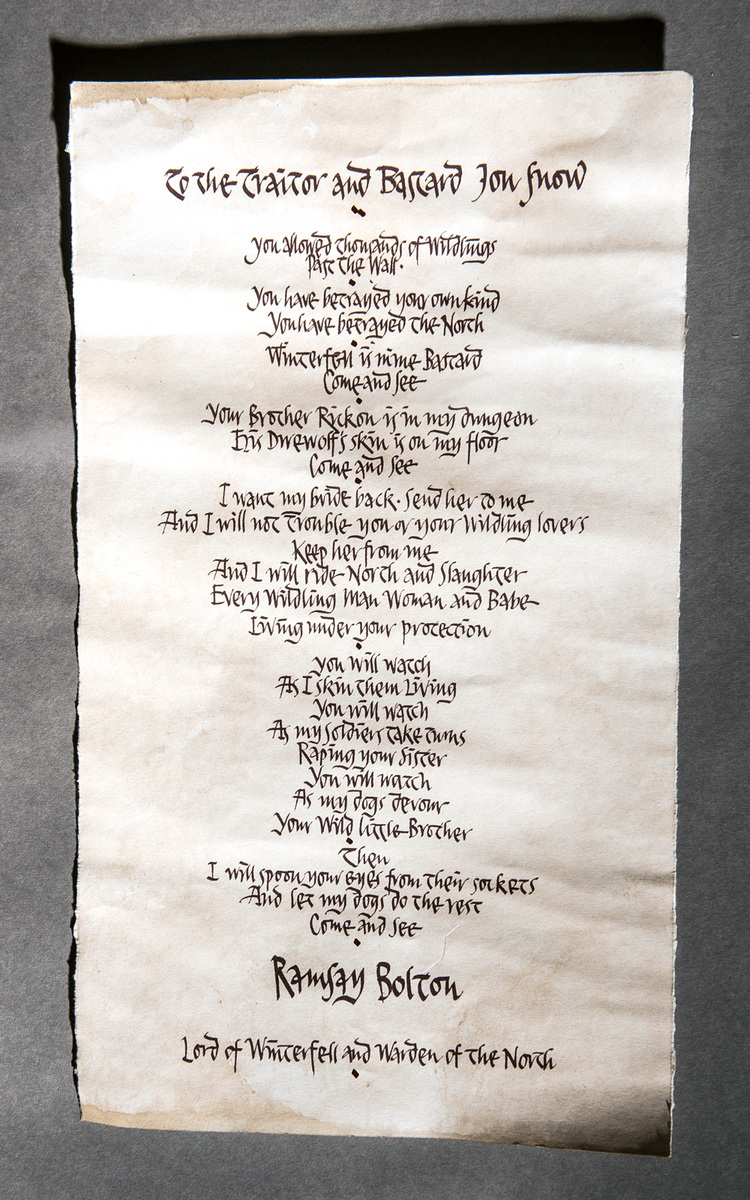 To the Traitor and Bastard Jon Snow
You allowed thousands of Wildlings
Past the Wall.
You have betrayed your own kind
You have betrayed the North
Winterfell is mine Bastard
Come and see
Your Brother Rickon is in my dungeon
His Direwolf's skin is on my floor
Come and see
I want my bride back. Send her to me
And I will not Trouble you or your Wildling lovers
Keep her from me
And I will ride North and Slaughter
Every Wildling Man Woman and Babe
Living under your protection
You will watch
As I skin them Living
You will watch
As my soldiers take turns
Raping your Sister
You will watch
As my dogs devour
Your Wild little Brother
Then
I will spoon your eyes from their sockets
And let my dogs do the rest
Come and see
Ramsay Bolton
Lord of Winterfell and Warden of the North